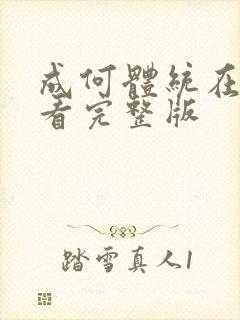 成何體統在
看完整版
踏雪真人1